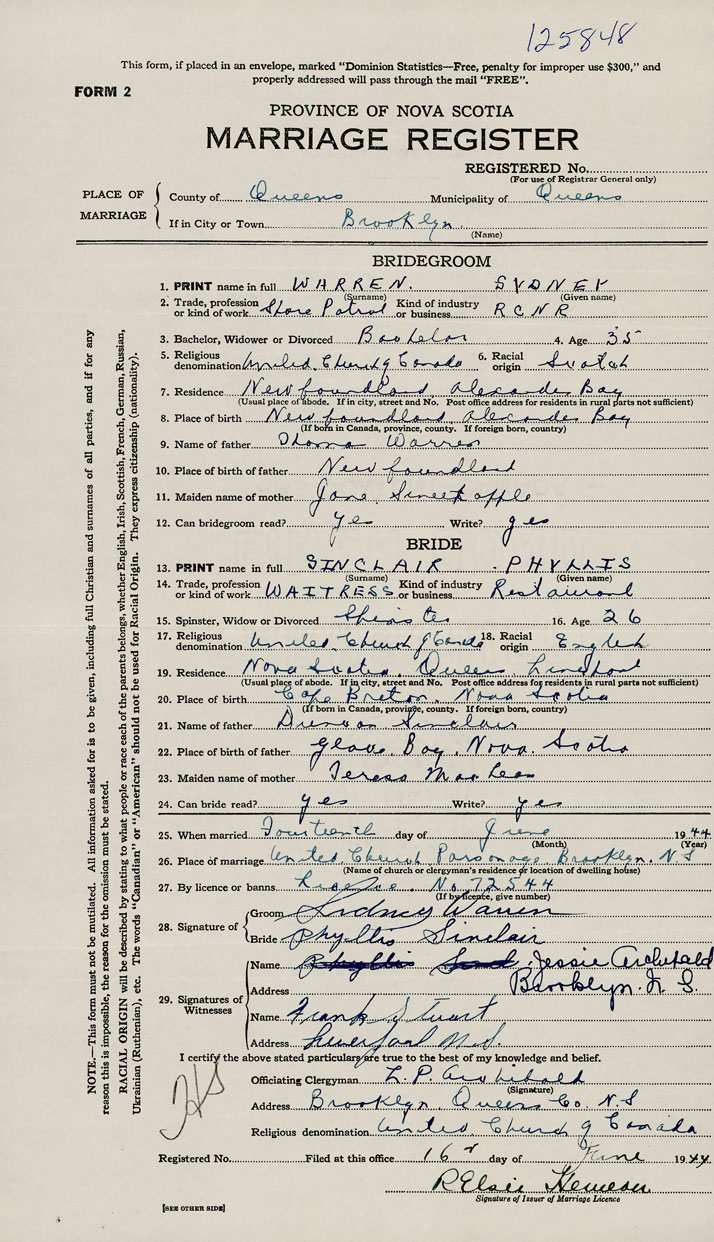 125848
This form, if placed in an envelope, marked "Dominion Statistics—Free, penalty for improper use $300," and
properly addressed will pass through the mail "FREE".
FORM 2
PROVINCE OF NOVA SCOTIA
MARRIAGE REGISTER
REGISTERED No.
(For use of Registrar General only)
PLACE OF MARRIAGE
County of Queens Municipality of Queens
If in City or Town Brooklyn
(Name)
BRIDEGROOM
1. PRINT name in full WARREN. SYDNEY
(Surname) (Given name)
2. Trade, profession or kind of work Shore Patrol Kind of industry or business RCNR
3. Bachelor, Widower or Divorced Bachelor 4. Age 35
5. Religious denomination United Church of Canada 6. Racial origin Scotch
7. Residence Newfoundland Alexander Bay
(Usual place of abode. If in city, street and No. Post office address for residents in rural parts not sufficient)
8. Place of birth Newfoundland Alexander Bay
(If born in Canada, province, county. If foreign born, country)
9. Name of father Thomas Warren
10. Place of birth of father Newfoundland
11. Maiden name of mother Jane Sweetapple
12. Can bridegroom read? yes Write? yes
BRIDE
13. PRINT name in full SINCLAIR PHYLLIS
(Surname) (Given name)
14. Trade, profession or kind of work WAITRESS Kind of industry or business Restaurant
15. Spinster, Widow or Divorced Spinster 16. Age 26
17. Religious denomination United Church of Canada 18. Racial origin English
19. Residence Nova Scotia Queens Liverpool
(Usual place of abode. If in city, street and No. Post office address for residents in rural parts not sufficient)
20. Place of birth Cape Breton, Nova Scotia
(If born in Canada, province, county. If foreign born, country)
21. Name of father Duncan Sinclair
22. Place of birth of father Glace Bay, Nova Scotia
23. Maiden name of mother Teresa MacLean
24. Can bride read? yes Write? yes
25. When married Fourteenth day of June 1944
(Month) (Year)
26. Place of marriage United Church Parsonage Brooklyn. N.S
(Name of church or clergyman's residence or location of dwelling house)
27. By licence or banns License No. 72544
(If by licence, give number)
28. Signature of
Groom Sydney Warren
Bride Phyllis Sinclair
29. Signatures of Witnesses
Name Phyllis Jessie Archibald
Address Brooklyn. N.S.
Name Frank Stuart
Address Liverpool N.S.
I certify the above stated particulars are true to the best of my knowledge and belief.
Officiating Clergyman L. P. Archibald
(Signature)
Address Brooklyn Queens Co. N.S
Religious denomination United Church of Canada
Registered No. Filed at this office 16 day of June 1944
R Elsie
Signature of Issuer of Marriage Licence
[SEE OTHER SIDE]
NOTE.—This form must not be mutilated. All information asked for is to be given, including full Christian and surnames of all parties, and if for any
reason this is impossible, the reason for the omission must be stated.
RACIAL ORIGIN will be described by stating to what people or race each of the parents belongs, whether English, Irish, Scottish, French, German, Russian,
Ukrainian (Ruthenian), etc. The words "Canadian" or "American" should not be used for Racial Origin. They express citizenship (nationality).